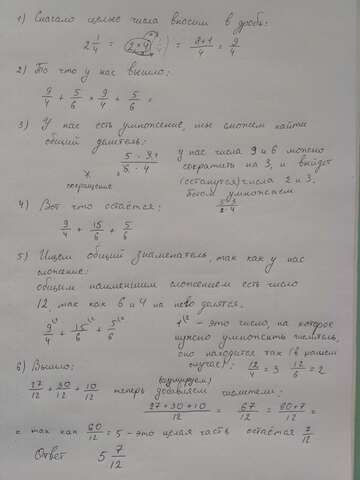 1) Сначало целые числа вносим в дробь:
2 1/4 = (2*4) = 8+1/4 = 9/4
2) То что у нас вышло:
9/4 + 5/6 * 9/4 + 5/6 =
3) У нас есть умножение, мы можем найти
общий делитель:
5 · 9/6 · 4
сокращение
у нас числа 9 и 6 можно
сократить на 3, и выйдет
(останутся) числа 2 и 3.
умножаем
4) Вот что остаётся:
9/4 + 15/6 + 5/6
5) Ищем общий знаменатель, так как у нас
сложение:
общим наименшим сложением есть число
12, так как 6 и 4 на него делятся.
9/4 + 15/6 + 5/6
- это число, на которое
нужно умножить числитель,
оно находится так (в нашем
случае): 12/4 = 3 12/6 = 2
6) Вышло:
27/12 + 30/12 + 10/12 теперь добавляем числители:
27+30+10/12 = 67/12 = 60+7/12 =
= так как 60/12 = 5 - это целая часть остаётся 7/12
Ответ 5 7/12